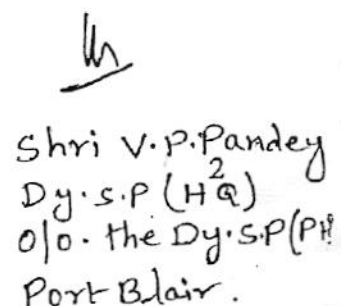 Shri V.P.Pandey
Dy.S.P (HQ)
O/O. the Dy.S.P(PH
Port Blair.